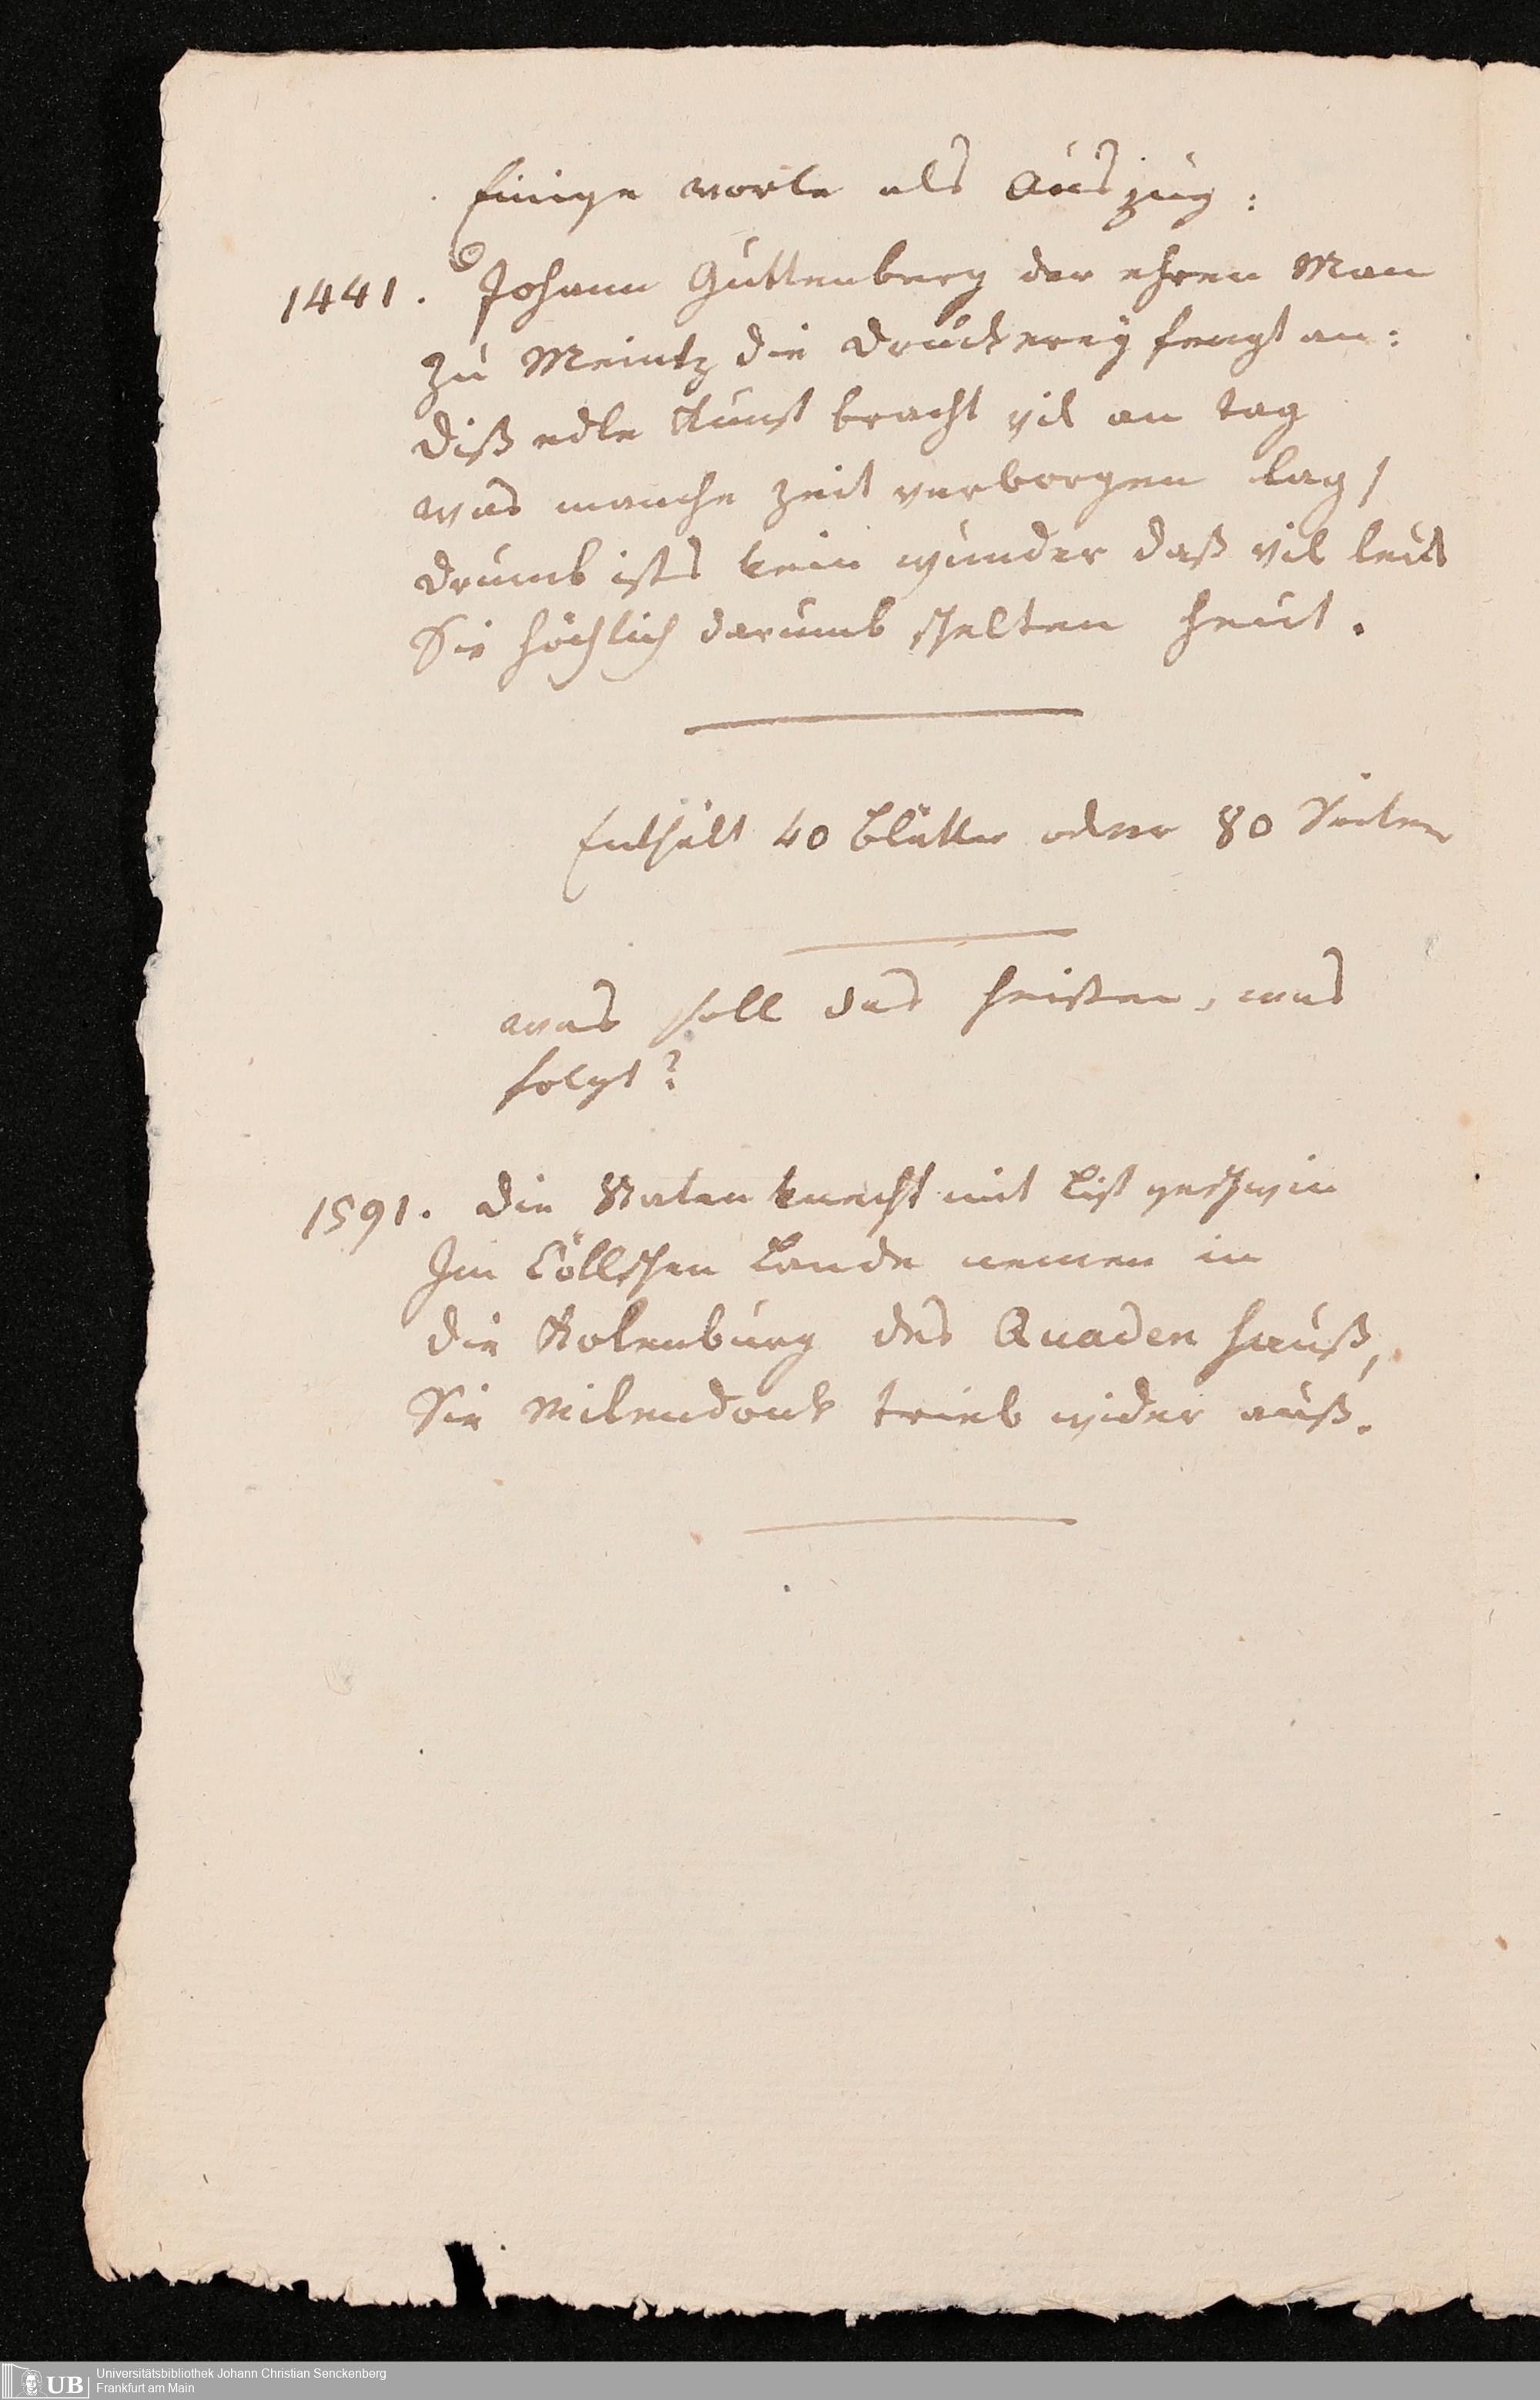 Einige worte als Auszug:
1441. Johann Guttenberg der ehren Man
Zu Meintz die Druckerey fengt an:
Diß edle Kunst bracht vil an tag
was manche zeit verborgen lag /
Drumb ists kein wunder daß vil leut
Sie höchlich darumb schelten heut.
Enthält 40 Blätter oder 80 Seiten
was soll das heißen, was
folgt?
1591. Die Staten knecht mit List geschwin
Im Cöllschen Lande nemen in
die Kolenburg des Quaden hauß,
Sie Milendonk trieb wider auß.
UB Universitätsbibliothek Johann Christian Senckenberg
Frankfurt am Main